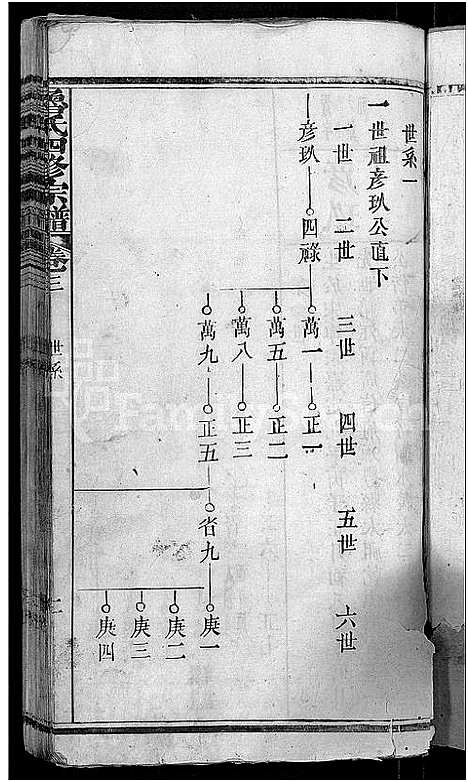 世系一
一世祖彦玖公直下
一世 二世 三世 四世 五世 六世
彦玖 四祿 萬一 正一
萬五 正二
萬八 正三
萬九 正五 省九 庚一
庚二
庚三
庚四
氏四修宗譜 卷三 世系